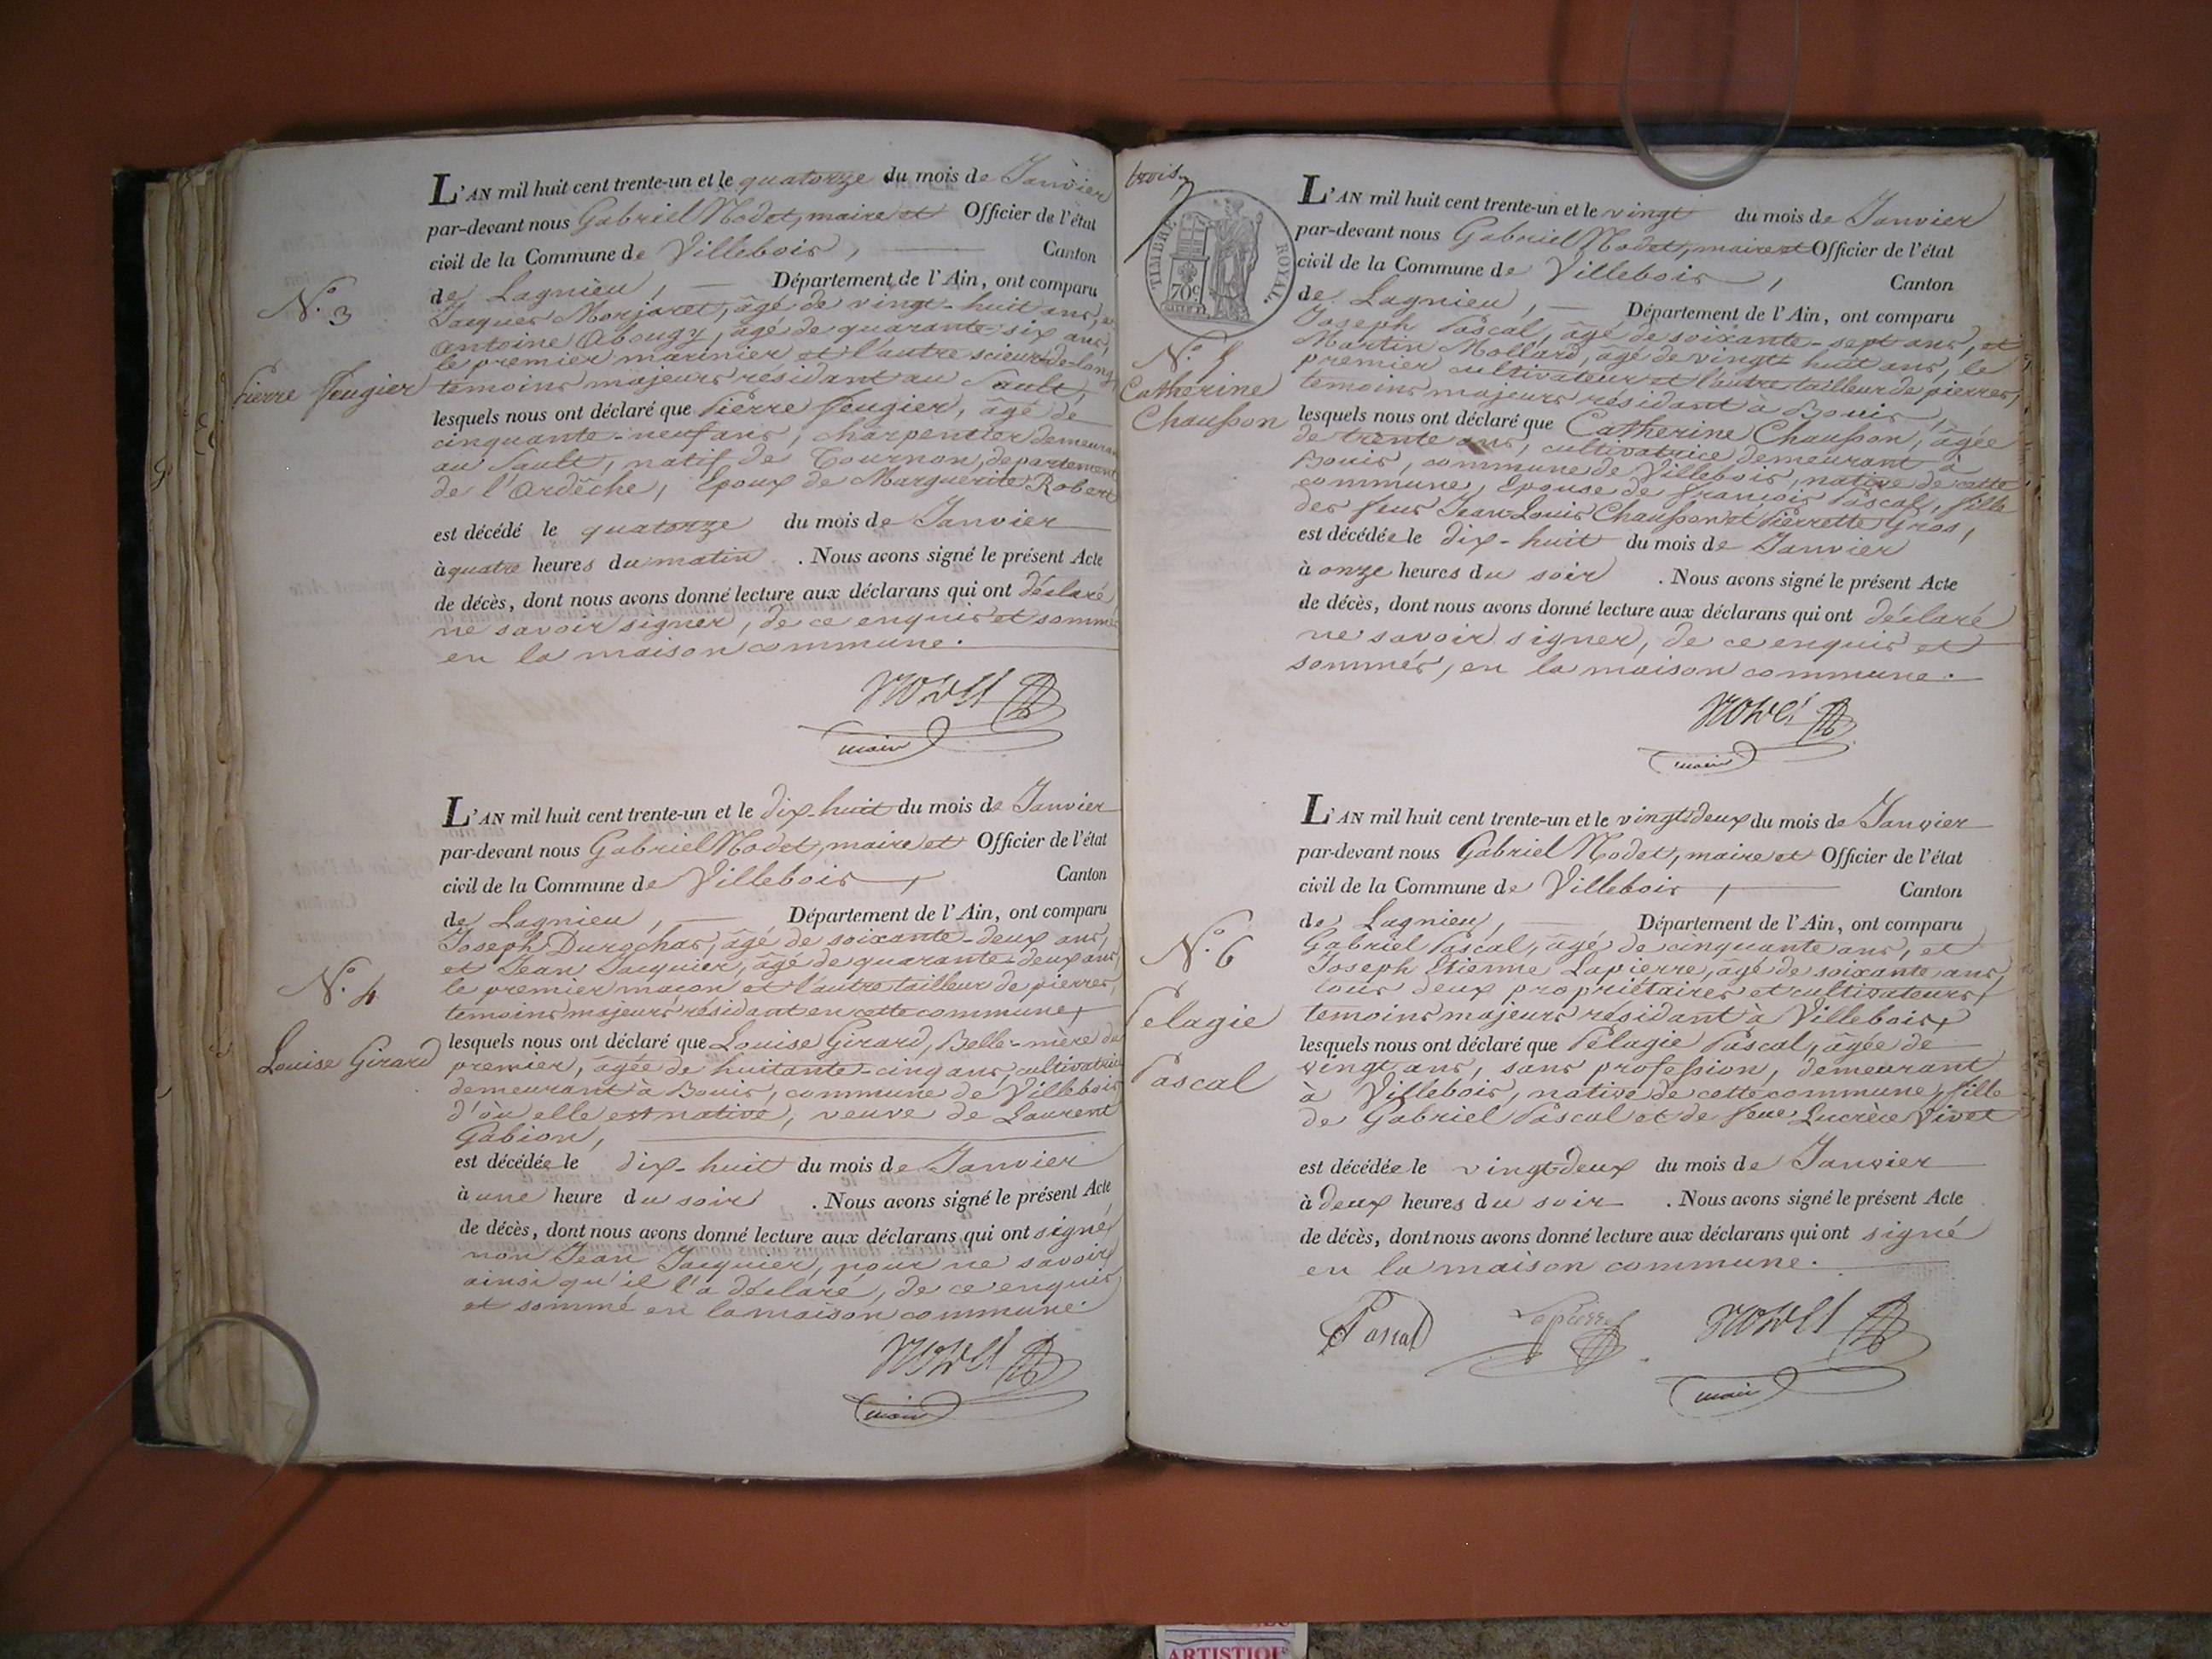 L'AN mil huit cent trente-un et le quatorze du mois de Janvier
par-devant nous Gabriel Nodet, maire et Officier de l'état
civil de la Commune de Villebois, Canton
de Lagnieu, Département de l'Ain, ont comparu
Jacques Monjaret, âgé de vingt-huit ans, et
Antoine Abougy, âgé de quarante-six ans,
le premier marinier et l'autre scieur-de-long
témoins majeurs résidant au Sault,
lesquels nous ont déclaré que Pierre Feugier, âgé de
cinquante-neuf ans, charpentier demeurant
au Sault, natif de Tournon, département
de l'Ardêche, Epoux de Marguerite Robert
est décédé le quatorze du mois de Janvier
à quatre heures du matin . Nous avons signé le présent Acte
de décès, dont nous avons donné lecture aux déclarans qui ont déclaré
ne savoir signer, de ce enquis et sommés
en la maison commune.
N.o 3
Pierre Feugier
Nodet
maire
L'AN mil huit cent trente-un et le dix-huit du mois de Janvier
par-devant nous Gabriel Nodet, maire et Officier de l'état
civil de la Commune de Villebois, Canton
de Lagnieu, Département de l'Ain, ont comparu
Joseph Durochas, âgé de soixante-deux ans,
et Jean Jacquier, âgé de quarante-deux ans,
le premier maçon et l'autre tailleur de pierres,
témoins majeurs résidant en cette commune,
lesquels nous ont déclaré que Louise Girard, Belle-mère du
premier, âgée de huitante-cinq ans, cultivatrice
demeurant à Bouis, commune de Villebois
d'où elle est native, veuve de Laurent
Gabion,
est décédée le dix-huit du mois de Janvier
à une heure du soir . Nous avons signé le présent Acte
de décès, dont nous avons donné lecture aux déclarans qui ont signé,
non Jean Jacquier, pour ne savoir
ainsi qu'il l'a déclaré, de ce enquis
et sommé en la maison commune.
N.o 4
Louise Girard
Nodet
maire
trois
TIMBRE ROYAL.
70c
L'AN mil huit cent trente-un et le vingt du mois de Janvier
par-devant nous Gabriel Nodet, maire et Officier de l'état
civil de la Commune de Villebois, Canton
de Lagnieu, Département de l'Ain, ont comparu
Joseph Pascal, âgé de soixante-sept ans, et
Martin Mollard, âgé de vingt-huit ans, le
premier cultivateur et l'autre tailleur de pierres,
témoins majeurs résidant à Bouis,
lesquels nous ont déclaré que Catherine Chausson, âgée
de trente ans, cultivatrice demeurant à
Bouis, commune de Villebois, native de cette
commune, Epouse de François Pascal, fille
des feus Jean-Louis Chausson et Pierrette Gros,
est décédée le dix-huit du mois de Janvier
à onze heures du soir . Nous avons signé le présent Acte
de décès, dont nous avons donné lecture aux déclarans qui ont déclaré
ne savoir signer, de ce enquis et
sommés, en la maison commune.
N.o 5
Catherine
Chausson
Nodet
maire
L'AN mil huit cent trente-un et le vingt-deux du mois de Janvier
par-devant nous Gabriel Nodet, maire et Officier de l'état
civil de la Commune de Villebois, Canton
de Lagnieu, Département de l'Ain, ont comparu
Gabriel Pascal, âgé de cinquante ans, et
Joseph Etienne Lapierre, âgé de soixante ans,
tous deux propriétaires et cultivateurs,
témoins majeurs résidant à Villebois,
lesquels nous ont déclaré que Pélagie Pascal, âgée de
vingt ans, sans profession, demeurant
à Villebois, native de cette commune, fille
de Gabriel Pascal et de feue Lucrèce Vivet
est décédée le vingt-deux du mois de Janvier
à deux heures du soir . Nous avons signé le présent Acte
de décès, dont nous avons donné lecture aux déclarans qui ont signé
en la maison commune.
N.o 6
Pelagie
Pascal
Pascal Lapierre Nodet
maire
ARTISTIQU